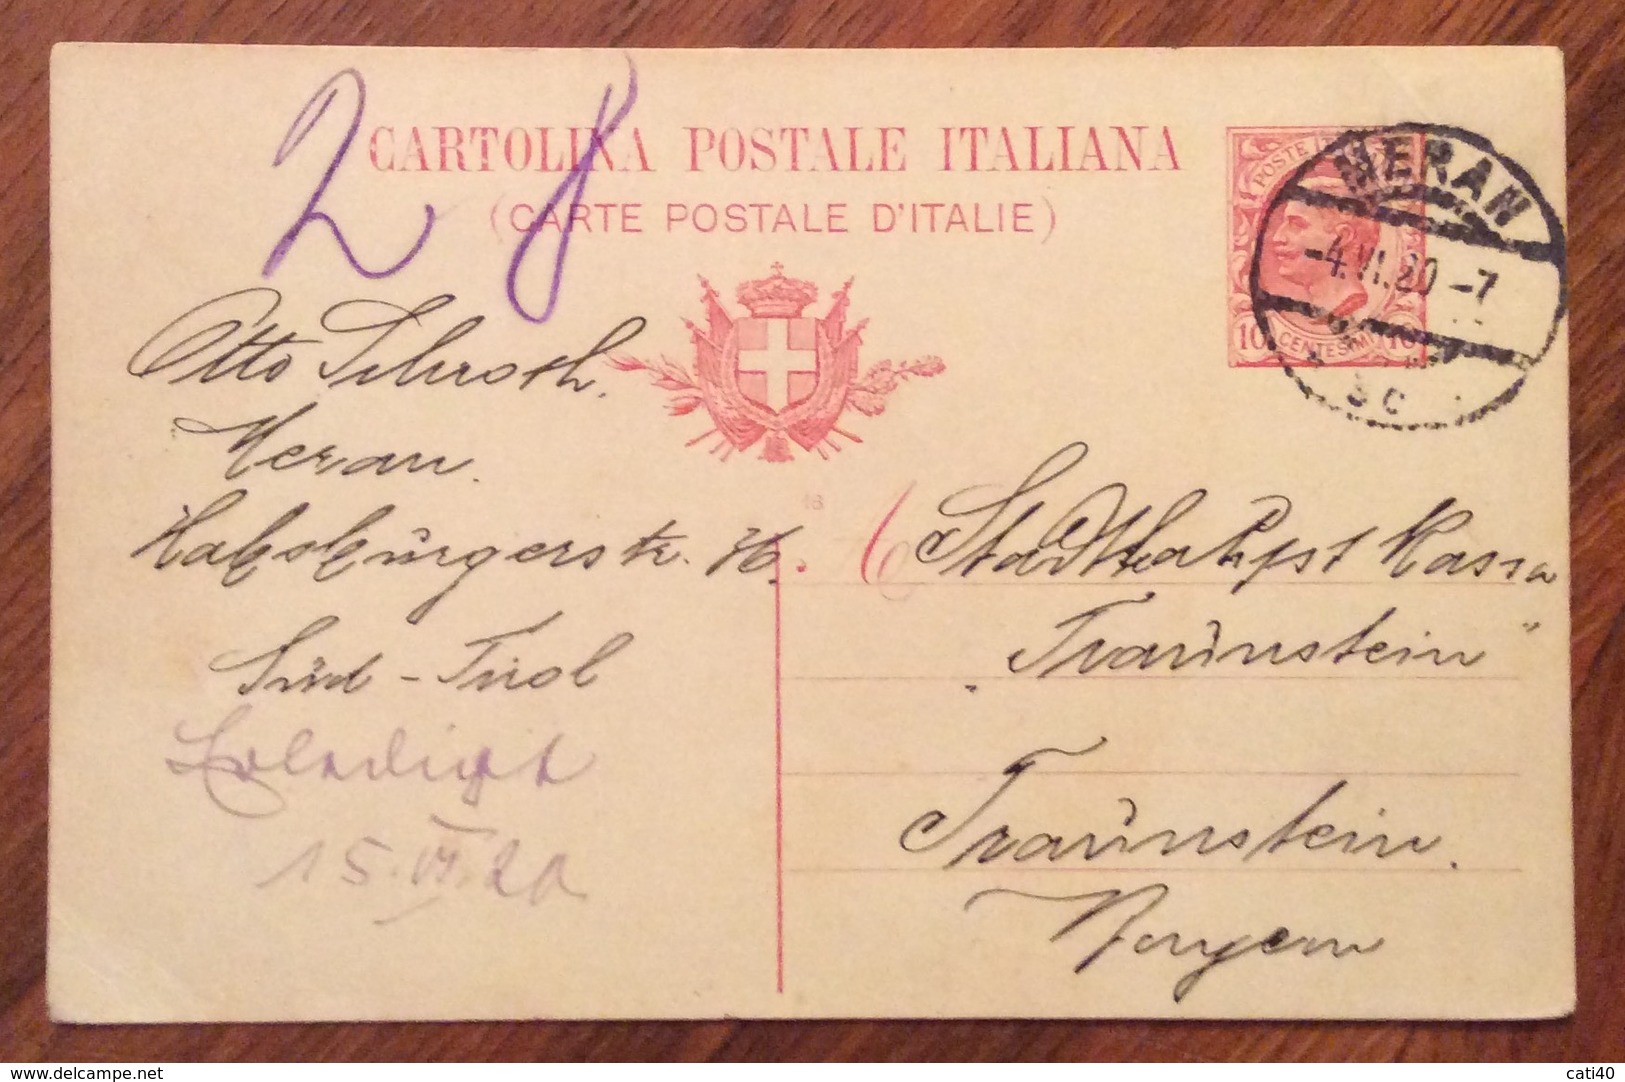 28
CARTOLINA POSTALE ITALIANA
(CARTE POSTALE D'ITALIE)
POSTE
10 CENTESIMI 10
MERAN
-4.VI.20-7
3C
Otto Schroth.
Meran.
Habsburgerstr.
Süd-Tirol
Erledigt
15.VI.20
16
Stadthauptkassa
"Traunstein"
Traunstein.
Bayern
www.delcampe.net
cati40